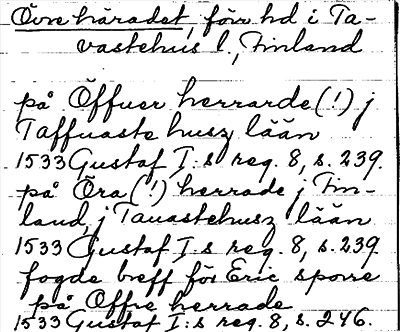 Övre häradet, förr hd i Ta-
vastehus l., Finland
på Öffuer herrarde (!) j
Taffuaste husz lään
1533 Gustaf I:s reg. 8, s. 239.
på Öra (!) herrade j Fin-
land, j Tauastehusz lään
1533 Gustaf I:s reg. 8, s. 239
fogde breff för Eric sporre
på Öffre herrade
1533 Gustaf I:s reg. 8, s. 246.